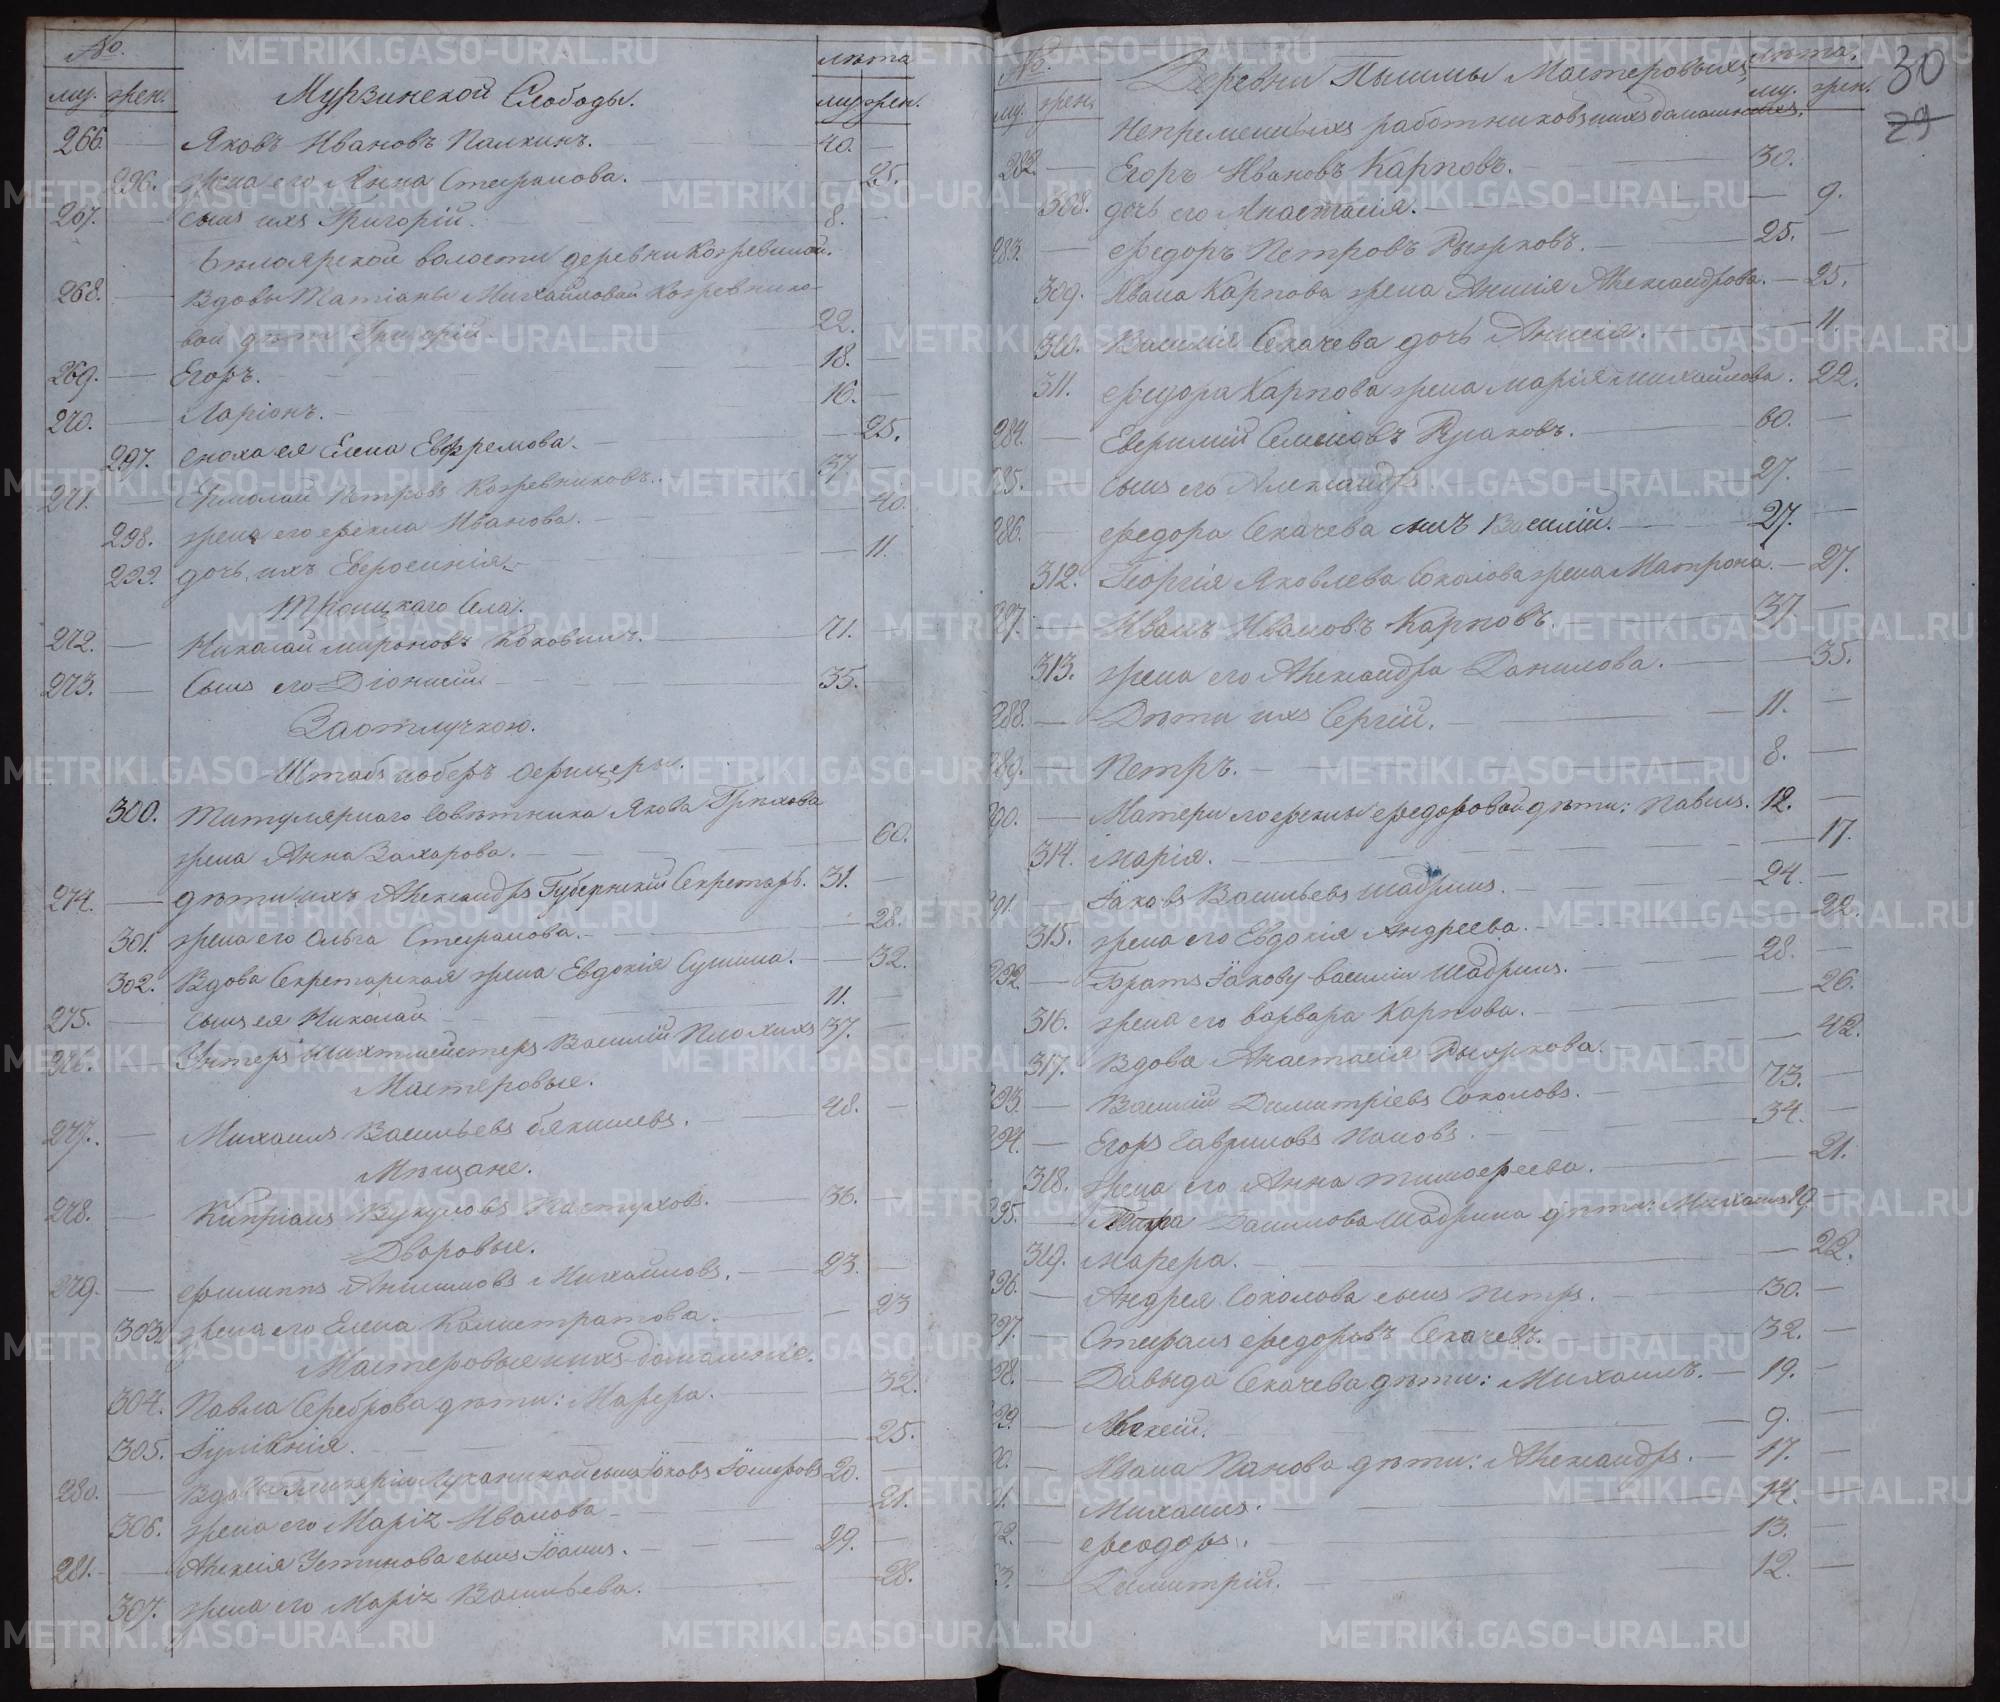 №. лѣта
му. жен. Мурзинской Слободы. му. жен.
266. — Яковъ Ивановъ Палкинъ. — 40. —
296. жена его Анна Стефанова. — 25.
267. — сынъ ихъ Григорій. 8. —
Бѣлоярской волости деревни Кожевиной.
268. — Вдовы Татіаны Михайловой Кожевнико-
вой дѣти Григорій. 22.
269. — Егоръ. — 18. —
270. — Ларіонъ. — 16. —
297. сноха ея Елена Евфремова. — 25.
271. — Ермолай Петровъ Кожевниковъ. 37. —
298. жена его Фекла Иванова. — 40.
299. дочь ихъ Евфросинія. — 11.
Троицкаго Села.
272. — Николай Мироновъ Коковинъ. — 71. —
273. — Сынъ его Діонисій — 35.
За отлучкою.
Штабъ и оберъ офицеры.
300. Титулярнаго Совѣтника Якова Грѣхова
жена Анна Захарова. — 60.
274. — дѣти ихъ Александръ Губернскій Секретарь. 31. —
301. жена его Ольга Стефанова. — 28.
302. Вдова Секретарская жена Евдокія Сушина. — 32.
275. — сынъ ея Николай — 11. —
276. — Унтеръ Шихтмейстеръ Василій Плохихъ 37. —
Мастеровые.
277. — Михаилъ Васильевъ Бякишевъ. — 48. —
Мѣщане.
278. — Кипріанъ Вукуловъ Пастуховъ. — 36. —
Дворовые.
279. — Филиппъ Анисимовъ Михайловъ. — 23. —
303. жена его Елена Калистратова. — 23
Мастеровые и ихъ домашніе.
304. Павла Сереброва дѣти: Марфа. — 32.
305. Іуліанія. — 25.
280. — Вдовы Гликеріи сынъ Іаковъ 20. —
306. жена его Марія Иванова — 21.
281. — Алексія Устинова сынъ Іоаннъ. — 29. —
307. жена его Марія Васильева. — 28.
№. лѣта. 30
му. жен. Деревни Пышмы Мастеровыхъ му. жен. 29
Непременныхъ работниковъ и ихъ домашнихъ.
282. — Егоръ Ивановъ Карповъ. — 30.
308. дочь его Анастасія. — 9.
283. — Федоръ Петровъ Рыжковъ. — 25. —
309. Ивана Карпова жена Анисія Александрова. — 25.
310. Василія Секачева дочь Анисія. — 11.
311. Федора Карпова жена Марія Михайлова. 22.
284. — Евфимій Семеновъ Русаковъ. — 60. —
285. — сынъ его Александръ — 27. —
286. — Федора Секачева сынъ Василій. — 27. —
312. Георгія Яковлева Соколова жена Матрона. — 27.
287. — Иванъ Ивановъ Карповъ. — 37 —
313. жена его Александра Данилова. — 35.
288. — Дѣти ихъ Сергій. — 11. —
289. — Петръ. — 8. —
290. — Матери его Феклы Федоровой дѣти: Павилъ. 12. —
314. Марія. — 17.
291. — Іаковъ Васильевъ Шадринъ. — 24. —
315. жена его Евдокія Андреева. — 22.
292. — Братъ Іакову Василій Шадринъ. — 28. —
316. жена его Варвара Карпова. — 26.
317. Вдова Анастасія Рыжкова. — 42.
293. — Василій Димитріевъ Соколовъ. — 73. —
294. — Егоръ Гавриловъ Пановъ. — 34. —
318. жена его Анна Тимофеева. — 21.
295. — Петра Данилова Шадрина дѣти: Михаилъ 19 —
319. Марфа. — 22.
296. — Андрея Соколова сынъ Петръ. — 30. —
297. — Стефанъ Федоровъ Секачевъ. — 32. —
298. — Давыда Секачева дѣти: Михаилъ. — 19. —
299. — Алексій. — 9. —
300. — Ивана Панова дѣти: Александръ. — 17. —
301. — Михаилъ. — 14. —
302. — Феодоръ. — 13. —
303. — Димитрій. — 12. —
METRIKI.GASO-URAL.RU